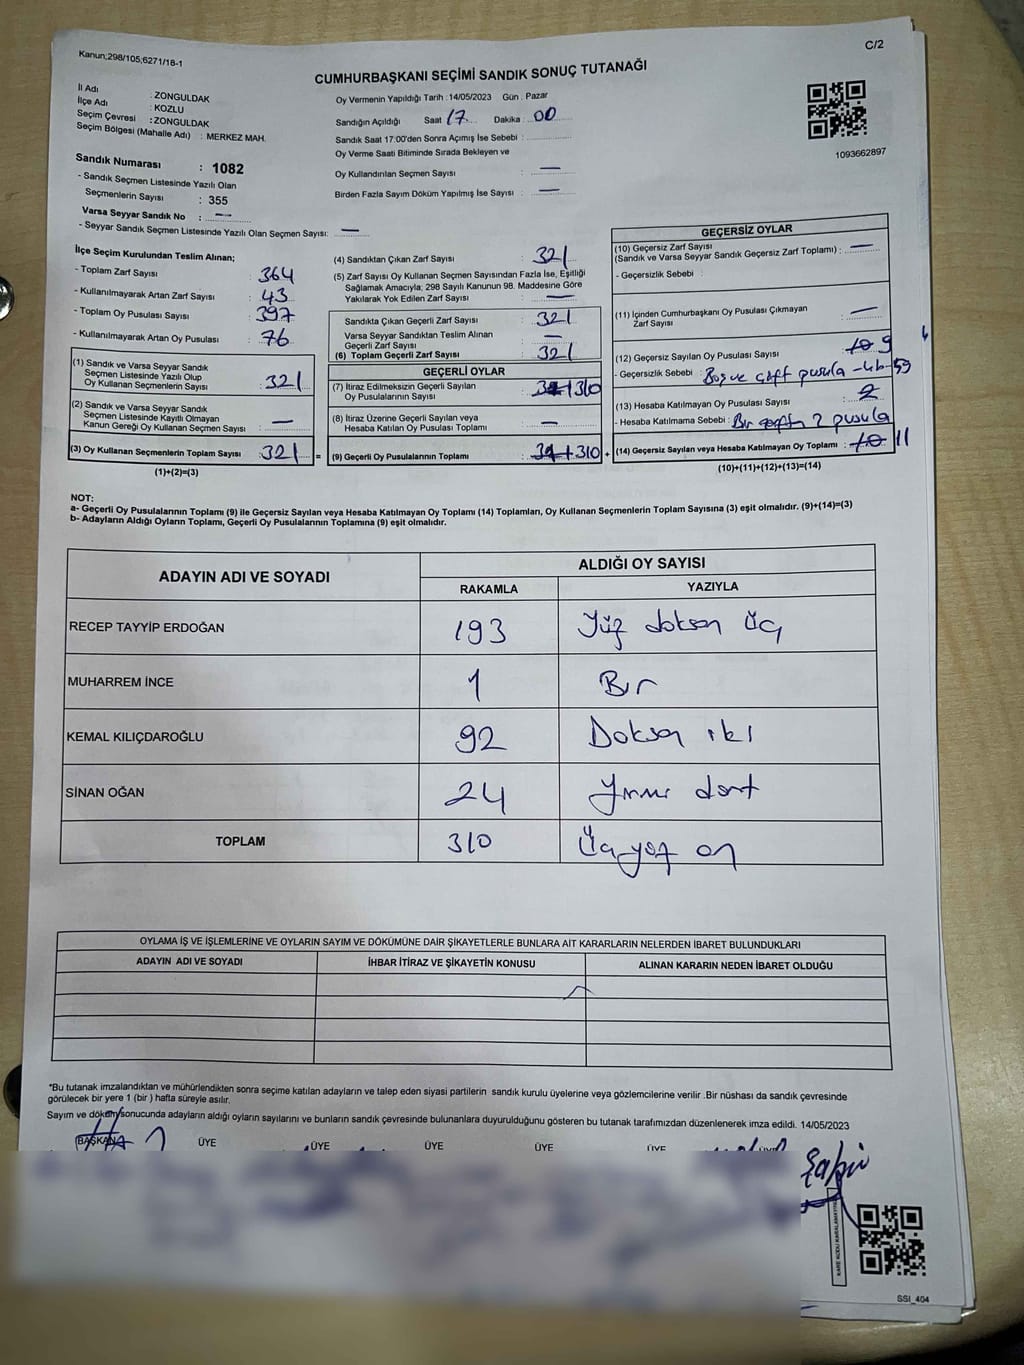 Kanun;298/105;6271/18-1
C/2
CUMHURBAŞKANI SEÇİMİ SANDIK SONUÇ TUTANAĞI
İl Adı : ZONGULDAK
İlçe Adı : KOZLU
Seçim Çevresi : ZONGULDAK
Seçim Bölgesi (Mahalle Adı) : MERKEZ MAH.
Oy Vermenin Yapıldığı Tarih : 14/05/2023 Gün : Pazar
Sandığın Açıldığı Saat 17 Dakika : 00
Sandık Saat 17:00'den Sonra Açımış İse Sebebi :
Oy Verme Saati Bitiminde Sırada Bekleyen ve
Oy Kullandırılan Seçmen Sayısı : —
Birden Fazla Sayım Döküm Yapılmış İse Sayısı : —
1093662897
Sandık Numarası : 1082
- Sandık Seçmen Listesinde Yazılı Olan
Seçmenlerin Sayısı : 355
Varsa Seyyar Sandık No : —
- Seyyar Sandık Seçmen Listesinde Yazılı Olan Seçmen Sayısı: —
İlçe Seçim Kurulundan Teslim Alınan;
- Toplam Zarf Sayısı : 364
- Kullanılmayarak Artan Zarf Sayısı : 43
- Toplam Oy Pusulası Sayısı : 397
- Kullanılmayarak Artan Oy Pusulası : 76
(1) Sandık ve Varsa Seyyar Sandık
Seçmen Listesinde Yazılı Olup
Oy Kullanan Seçmenlerin Sayısı : 321
(2) Sandık ve Varsa Seyyar Sandık
Seçmen Listesinde Kayıtlı Olmayan
Kanun Gereği Oy Kullanan Seçmen Sayısı : —
(3) Oy Kullanan Seçmenlerin Toplam Sayısı : 321 =
(1)+(2)=(3)
(4) Sandıktan Çıkan Zarf Sayısı : 321
(5) Zarf Sayısı Oy Kullanan Seçmen Sayısından Fazla İse, Eşitliği
Sağlamak Amacıyla; 298 Sayılı Kanunun 98. Maddesine Göre
Yakılarak Yok Edilen Zarf Sayısı : —
Sandıkta Çıkan Geçerli Zarf Sayısı : 321
Varsa Seyyar Sandıktan Teslim Alınan
Geçerli Zarf Sayısı : —
(6) Toplam Geçerli Zarf Sayısı : 321
GEÇERLİ OYLAR
(7) İtiraz Edilmeksizin Geçerli Sayılan
Oy Pusulalarının Sayısı : 310
(8) İtiraz Üzerine Geçerli Sayılan veya
Hesaba Katılan Oy Pusulası Toplamı : —
(9) Geçerli Oy Pusulalarının Toplamı : 310 +
GEÇERSİZ OYLAR
(10) Geçersiz Zarf Sayısı
(Sandık ve Varsa Seyyar Sandık Geçersiz Zarf Toplamı) : —
- Geçersizlik Sebebi :
(11) İçinden Cumhurbaşkanı Oy Pusulası Çıkmayan
Zarf Sayısı : —
(12) Geçersiz Sayılan Oy Pusulası Sayısı : 10 9
- Geçersizlik Sebebi : Boş ve çift pusula
(13) Hesaba Katılmayan Oy Pusulası Sayısı : 2
- Hesaba Katılmama Sebebi : Bir zarftn 2 pusula
(14) Geçersiz Sayılan veya Hesaba Katılmayan Oy Toplamı : 10 11
(10)+(11)+(12)+(13)=(14)
NOT:
a- Geçerli Oy Pusulalarının Toplamı (9) ile Geçersiz Sayılan veya Hesaba Katılmayan Oy Toplamı (14) Toplamları, Oy Kullanan Seçmenlerin Toplam Sayısına (3) eşit olmalıdır. (9)+(14)=(3)
b- Adayların Aldığı Oyların Toplamı, Geçerli Oy Pusulalarının Toplamına (9) eşit olmalıdır.
ADAYIN ADI VE SOYADI
ALDIĞI OY SAYISI
RAKAMLA YAZIYLA
RECEP TAYYİP ERDOĞAN 193 Yüz doksan üç
MUHARREM İNCE 1 Bir
KEMAL KILIÇDAROĞLU 92 Doksan iki
SİNAN OĞAN 24 Yirmi dört
TOPLAM 310 Üçyüz on
OYLAMA İŞ VE İŞLEMLERİNE VE OYLARIN SAYIM VE DÖKÜMÜNE DAİR ŞİKAYETLERLE BUNLARA AİT KARARLARIN NELERDEN İBARET BULUNDUKLARI
ADAYIN ADI VE SOYADI İHBAR İTİRAZ VE ŞİKAYETİN KONUSU ALINAN KARARIN NEDEN İBARET OLDUĞU
*Bu tutanak imzalandıktan ve mühürlendikten sonra seçime katılan adayların ve talep eden siyasi partilerin sandık kurulu üyelerine veya gözlemcilerine verilir .Bir nüshası da sandık çevresinde
görülecek bir yere 1 (bir ) hafta süreyle asılır.
Sayım ve döküm sonucunda adayların aldığı oyların sayılarını ve bunların sandık çevresinde bulunanlara duyurulduğunu gösteren bu tutanak tarafımızdan düzenlenerek imza edildi. 14/05/2023
BAŞKAN ÜYE ÜYE ÜYE ÜYE ÜYE ÜYE
SSI_404